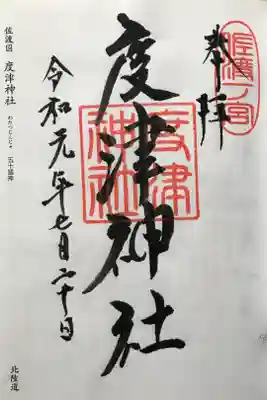 奉拝
佐渡一宮
度津神社
度津神社
令和元年七月二十日
佐渡国 度津神社
わたつじんじゃ
五十猛神
北陸道